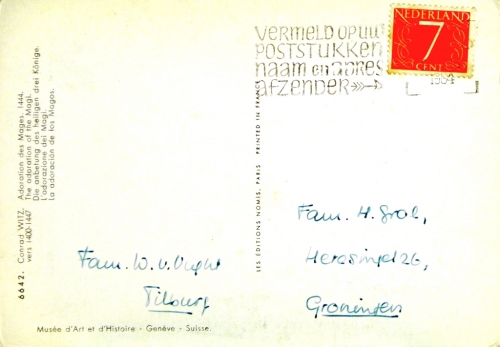 6642. Conrad WITZ, Adoration des Mages. 1444.
vers 1400-1447 The adoration of the Magi.
Die anbetung des heiligen drei Könige.
L'adorazione dei Magi.
La adoración de los Magos.
VERMELD OP UW
POSTSTUKKEN
naam en adres
AFZENDER
NEDERLAND
7
CENT
1964
LES ÉDITIONS NOMIS, PARIS PRINTED IN FRANCE
Fam. W. v. Vught
Tilburg
Fam. H. Grol,
Heresingel 26,
Groningen
Musée d'Art et d'Histoire - Genève - Suisse.